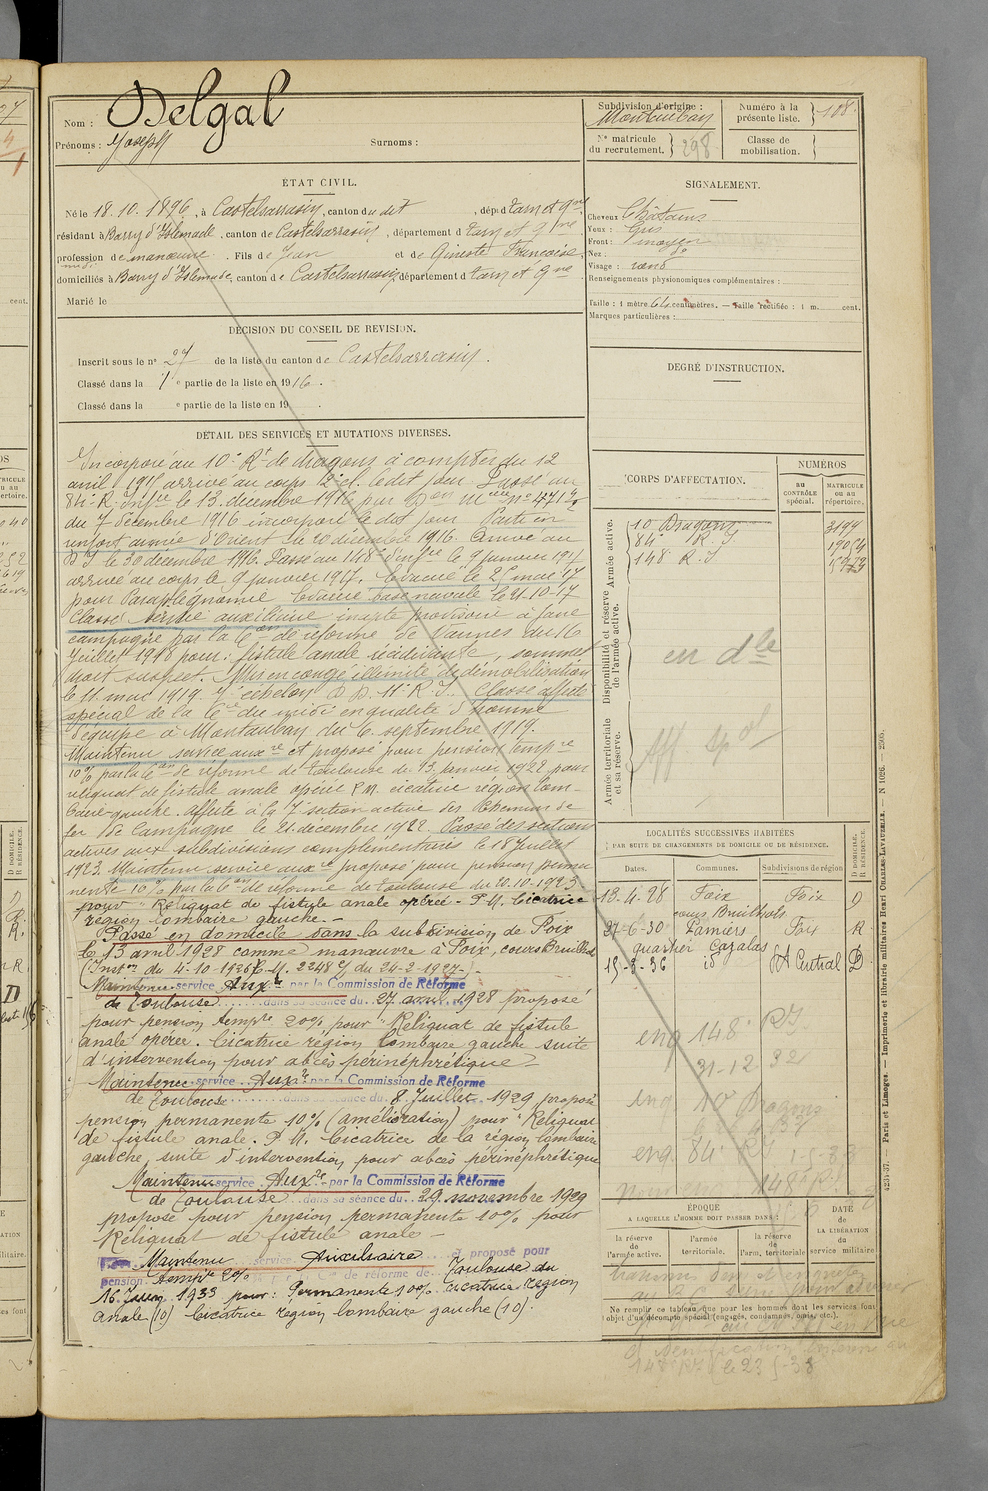 Nom : Delgal
Prénoms : Joseph Surnoms :
Subdivision d'origine : Montauban
Nº matricule du recrutement. 298
Numéro à la présente liste. 108.
Classe de mobilisation.
ÉTAT CIVIL.
Né le 18.10.1896, à Castelsarrasin, canton du dit, dépt d Tarn et Gne
résidant à Barry d'Islemade, canton de Castelsarrasin, département d Tarn et Gne
profession de manœuvre. Fils de Jean et de Gineste Françoise
domiciliés à Barry d'Islemade, canton de Castelsarrasin, département d Tarn et Gne
Marié le
DÉCISION DU CONSEIL DE REVISION.
Inscrit sous le nº 27 de la liste du canton de Castelsarrasin.
Classé dans la 1e partie de la liste en 1916.
Classé dans la e partie de la liste en 19
SIGNALEMENT.
Cheveux Châtains
Yeux : Gris
Front : moyen
Nez : do
Visage : rond
Renseignements physionomiques complémentaires :
Taille : 1 mètre 64 centimètres. — Taille rectifiée : 1 m. cent.
Marques particulières :
DEGRÉ D'INSTRUCTION.
DÉTAIL DES SERVICES ET MUTATIONS DIVERSES.
Incorporé au 10e Rt de dragons à compter du 12
avril 1915 arrivé au corps le dit jour. Passé au
84e R. Infie le 13 décembre 1916 par
du 7 décembre 1916 incorporé le dit jour Parti en
renfort armée d'Orient le 20 décembre 1916. Arrivé au
D I le 30 décembre 1916. Passé au 148e d'infie le 9 janvier 1917
arrivé au corps le 9 janvier 1917. Evacué le 25 mai 17
pour Evacué base navale le 21-10-17
Classé service auxiliaire inapte provisoire à faire
campagne par la Con de réforme de Vannes du 16
Juillet 1918 pour : fistule anale récidivante, sommet
droit suspect. Mis en congé illimité de démobilisation
le 11 mai 1919. 7e échelon D.D. 11e R.I. Classé affecté
spécial de la Cie du midi en qualité d'homme
d'équipe à Montauban du 6 septembre 1919.
Maintenu service auxre et proposé pour pension tempre
10% par la Con de réforme de Toulouse du 13 janvier 1922 pour
reliquat de fistule anale opérée P.M. cicatrice région lom-
baire gauche. Affecté à la 7e section active des Chemins de
fer de Campagne le 21 décembre 1922. Passé des sections
actives aux subdivisions complémentaires le 18 Juillet
1923. Maintenu service auxre proposé pour pension perma-
nente 10% par la Con de réforme de Toulouse du 20-10-1923
pour "Reliquat de fistule anale opérée - P.M. Cicatrice
région lombaire gauche. —
Passé en domicile dans la subdivision de Foix
le 13 avril 1928 comme manœuvre à Foix, cours Bruilhols
(Inston du 4-10-1926 C.M. 2248 du 24-2-1927)
Maintenu service Auxre par la Commission de Réforme
de Toulouse dans sa séance du 27 avril 1928 proposé
pour pension tempre 20% pour "Reliquat de fistule
anale opérée. Cicatrice région lombaire gauche suite
d'intervention pour abcès périnéphrétique"
Maintenu service Auxre par la Commission de Réforme
de Toulouse dans sa séance du 8 Juillet 1929 proposé
pension permanente 10% (amélioration) pour "Reliquat
de fistule anale. P.M. Cicatrice de la région lombaire
gauche, suite d'intervention pour abcès périnéphrétique
Maintenu service Auxre par la Commission de Réforme
de Toulouse dans sa séance du 29 novembre 1929
proposé pour pension permanente 10% pour
Reliquat de fistule anale —
Maintenu service Auxiliaire et proposé pour
pension de réforme de Toulouse du
16 Juin 1933 pour : Permanente 10% cicatrice région
anale (10) Cicatrice région lombaire gauche (10).
CORPS D'AFFECTATION.
NUMÉROS
au CONTRÔLE spécial.
MATRICULE ou au répertoire.
Armée active.
10 Dragons 3199
84e R.I 19054
148 R.I
Disponibilité et réserve de l'armée active.
en dle
Armée territoriale et sa réserve.
Aff. spal
LOCALITÉS SUCCESSIVES HABITÉES
PAR SUITE DE CHANGEMENTS DE DOMICILE OU DE RÉSIDENCE.
Dates. Communes. Subdivisions de région
D DOMICILE. R RÉSIDENCE.
13-4-28 Foix Foix D
cours Bruilhols
27-6-30 Pamiers Foix R
quartier Cazalas
18-3-36 id St Central D
eng 148e RI
31-12 32
eng 10e Dragons
eng. 84e RI 1-5-33
148e RI
ÉPOQUE
A LAQUELLE L'HOMME DOIT PASSER DANS :
la réserve de l'armée active.
l'armée territoriale.
la réserve de l'arm. territoriale
DATE de LA LIBÉRATION du service militaire
Ne remplir ce tableau que pour les hommes dont les services font
l'objet d'un décompte spécial (engagés, condamnés, omis, etc.).
148e RI le 23-5-33
4231-37. — Paris et Limoges. — Imprimerie et librairie militaires Henri CHARLES-LAVAUZELLE. — N 1026.